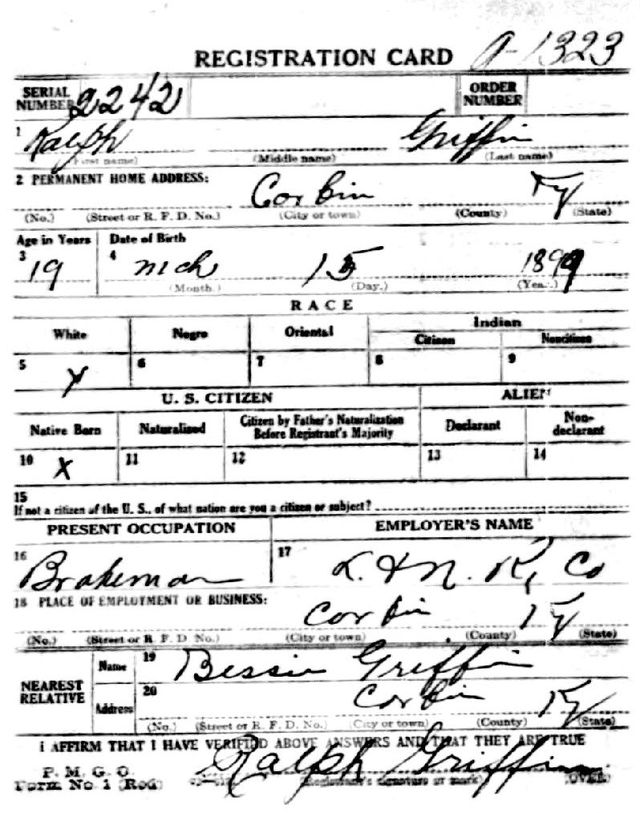 REGISTRATION CARD A-1323
SERIAL NUMBER 2242 ORDER NUMBER
1 Ralph Griffin
(First name) (Middle name) (Last name)
2 PERMANENT HOME ADDRESS:
Corbin Ky
(No.) (Street or R. F. D. No.) (City or town) (County) (State)
Age in Years Date of Birth
3 19 4 Mch 15 1899
(Month.) (Day.) (Year.)
RACE
White Negro Oriental Indian
Citizen Noncitizen
5 X 6 7 8 9
U. S. CITIZEN ALIEN
Native Born Naturalized Citizen by Father's Naturalization Before Registrant's Majority Declarant Non-declarant
10 X 11 12 13 14
15
If not a citizen of the U. S., of what nation are you a citizen or subject?
PRESENT OCCUPATION EMPLOYER'S NAME
16 Brakeman 17 L. & N. R, Co
18 PLACE OF EMPLOYMENT OR BUSINESS:
Corbin Ky
(No.) (Street or R. F. D. No.) (City or town) (County) (State)
NEAREST RELATIVE Name 19 Bessie Griffin
Address 20 Corbin Ky
(No.) (Street or R. F. D. No.) (City or town) (County) (State)
I AFFIRM THAT I HAVE VERIFIED ABOVE ANSWERS AND THAT THEY ARE TRUE
P. M. G. O.
Form No 1 (Red) Ralph Griffin
(Registrant's signature or mark) (OVER)